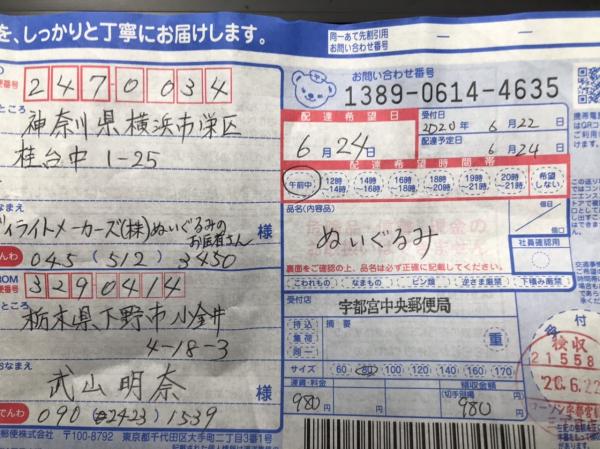 を、しっかりと丁寧にお届けします。
同一あて先割引用
お問い合わせ番号
便番号
2470034
ところ
神奈川県横浜市栄区
桂台中 1-25
なまえ
ィライトメーカーズ(株)ぬいぐるみの
お医者さん
様
でんわ 045 (512) 3450
ROM
便番号
3290414
ところ
栃木県下野市小金井
4-18-3
おなまえ
武山 明奈
様
でんわ 090 (2423) 1539
便株式会社 〒100-8792 東京都千代田区大手町二丁目3番1号
お問い合わせ番号
1389-0614-4635
配達希望日
6月24日
受付日
2020年 6月22日
配達予定日
6月24日
配達希望時間帯
午前中
12時~14時
14時~16時
16時~18時
18時~20時
19時~21時
20時~21時
希望しない
品名(内容品)
ぬいぐるみ
個口
個目
社員確認用
裏面をご確認の上、品名は必ず正確に記載してください。
こわれもの
なまもの
ビン類
逆さま厳禁
下積み厳禁
受付店
宇都宮中央郵便局
持込
集荷
同一
摘要
重
サイズ 60 80 100 120 140 160 170
運賃・料金
980円
領収金額
切手別場
980円
受付
検収
21558
20.6.22